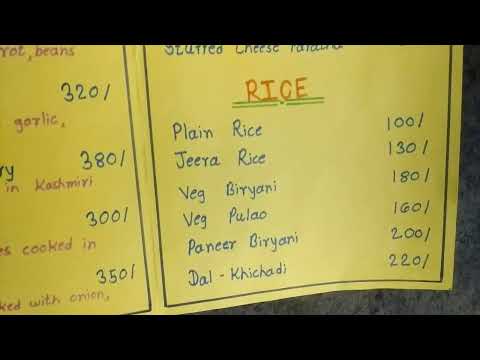 rot, beans
320/
garlic,
380/
in Kashmiri
300/
cooked in
350/
with onion,
Stuffed Cheese Paratha
RICE
Plain Rice 100/
Jeera Rice 130/
Veg Biryani 180/
Veg Pulao 160/
Paneer Biryani 200/
Dal - Khichadi 220/